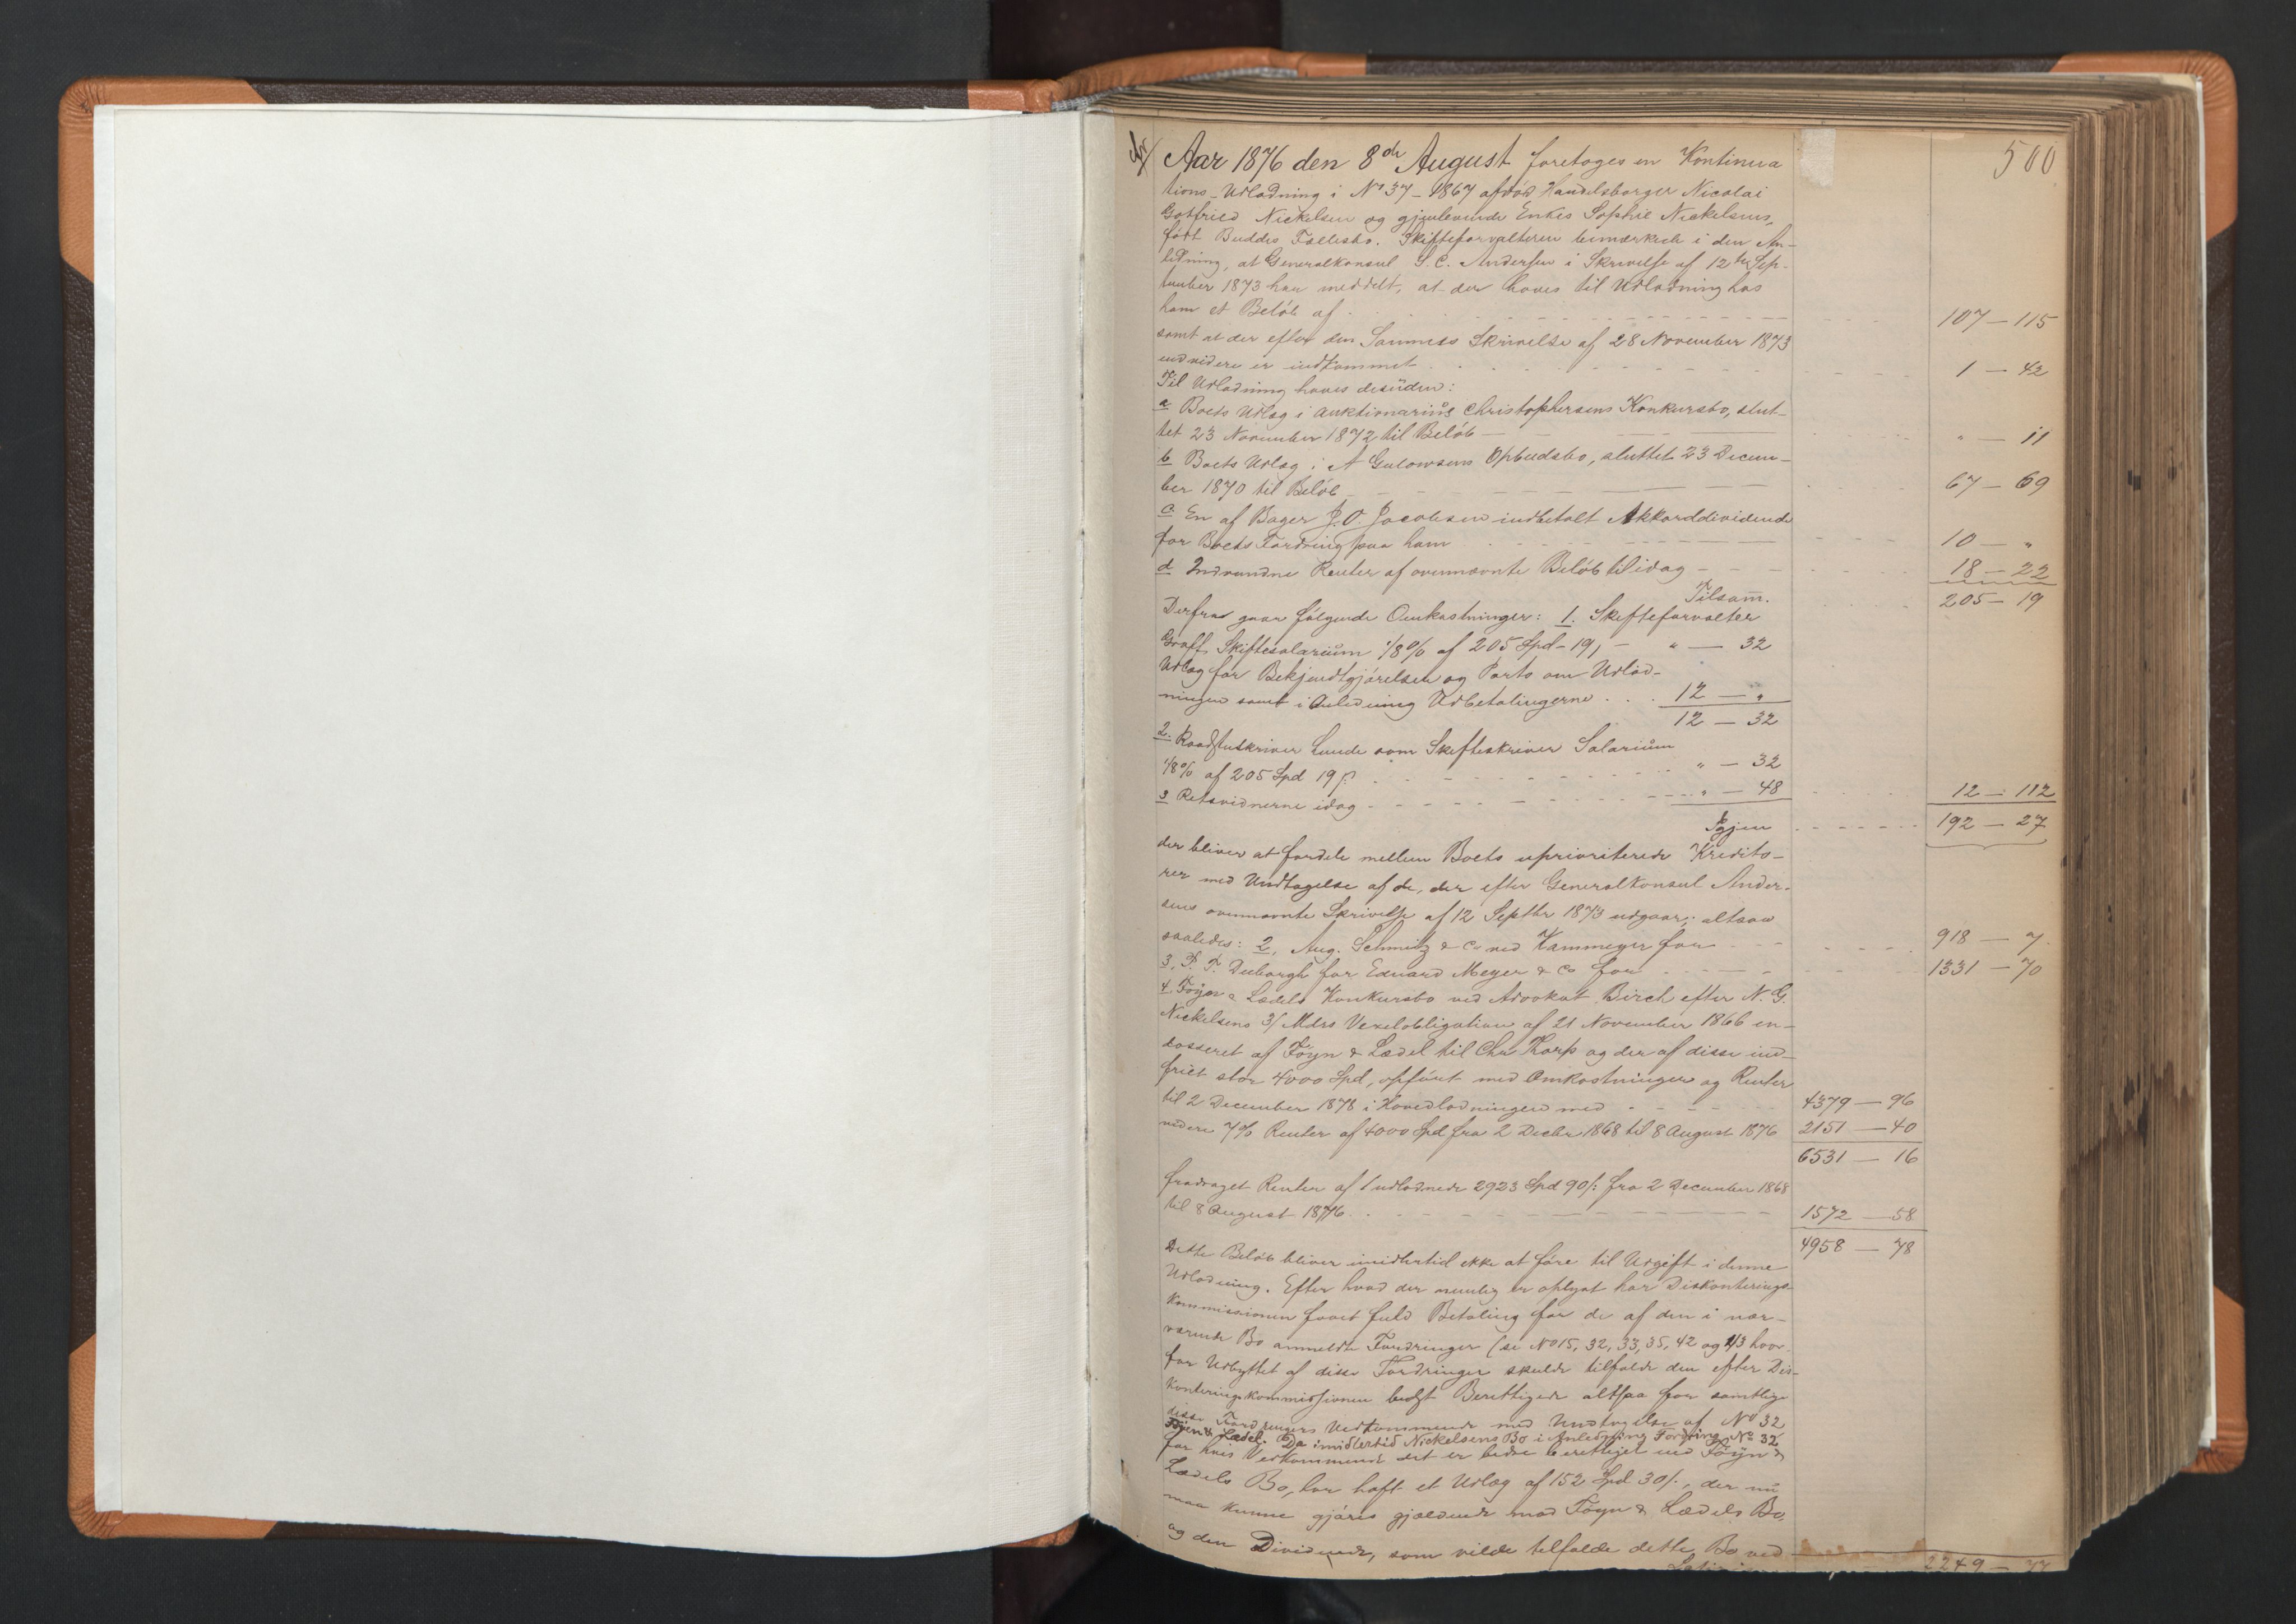 500
Aar 1876 den 8de August foretoges en Kontinua
tions-Udlodning i No 37 - 1867 afdöd Handelsborger Nicolai
Gotfried Nickelsen og gjenlevende Enkes Sophie Nickelsens,
födt Buddes Fællesbo. Skifteforvalteren bemærkede i den An-
ledning, at Generalkonsul S. C. Andersen i Skrivelse af 12te Sep-
tember 1873 har meddelt, at der haves til Udlodning hos
ham et Belöb af 107 - 115
samt at der efter den Sammes Skrivelse af 28 November 1873
endvidere er indkommet 1 - 42
Til Udlodning haves desuden:
a Boets Udlæg i Auktionarius Christophersens Konkursbo, slut-
tet 23 November 1872 til Belöb " - 11
b Boets Udlæg i A Gulowsens Opbudsbo, sluttet 23 Decem-
ber 1870 til Belöb 67 - 69
c En af Bager J. O. Jacobsen indbetalt Akkorddividende
for Boets Fordring paa ham 10 - "
d Indvundne Renter af ovennævnte Belöb til idag 18 - 22
Tilsam. 205 - 19
Derfra gaar fölgende Omkostninger: 1. Skifteforvalter
Graff, Skiftesalarium 1/8 % af 205 Spd - 19, - " - 32
Udlæg for Bekjendtgjörelsen og Porto om Udlod-
ningen samt i Anledning Udbetalingerne 12 - "
12 - 32
2. Raadstuskriver Lunde som Skifteskriver Salarium
1/8 % af 205 Spd 19 ß " - 32
3 Retsvidnerne idag " - 48 12 - 112
Igjen 192 - 27
der bliver at fordele mellem Boets uprioriterede Kredito-
rer med Undtagelse af de, der efter Generalkonsul Ander-
sens ovennævnte Skrivelse af 12 Septbr 1873 udgaar; altsaa
saaledes: 2, Aug. Schmitz & Co ved Kammeyer for 918 - 7
3, P. T. Duborgh for Eduard Meyer & Co for 1331 - 70
4 Föyn & Lædels Konkursbo ved Advokat Birch efter N. G.
Nickelsens 3/ Mdrs Vexelobligation af 21 November 1866 en-
dosseret af Föyn & Lædel til Chr Thorp og der af disse ind-
friet stor 4000 Spd, opfört med Omkostninger og Renter
til 2 December 1878 i Hovedlodningen med 4379 - 96
videre 7% Renter af 4000 Spd fra 2 Decbr 1868 til 8 August 1876 2151 - 40
6531 - 16
fradraget Renter af udlodnede 2923 Spd 90 ß: fra 2 December 1868
til 8 August 1876 1572 - 58
4958 - 78
Dette Belöb bliver imidlertid ikke at före til Udgift i denne
Udlodning. Efter hvad der nemlig er oplyst har Diskonterings-
kommissionen faaet fuld Betaling for de af den i nær-
værende Bo anmeldte Fordringer (se No 15, 32, 33, 35, 42 og 43 hvor-
for Udbyttet af disse Fordringer skulde tilfalde den efter Dis-
konteringskommissionen bedst Berettigede altsaa for samtlige
disse Fordringers Vedkommende med Undtagelse af No 32
Föyn & Lædel. Da imidlertid Nickelsens Bo i Anledning Fordring No 32
for hvis Vedkommende det er bedre berettiget end Föyn &
Lædels Bo, har haft et Udlæg af 152 Spd 30 ß, der nu
maa kunne gjöres gjældende mod Föyn & Lædels Bo,
og den Dividende, som vilde tilfalde dette Bo ved
2249 - 77